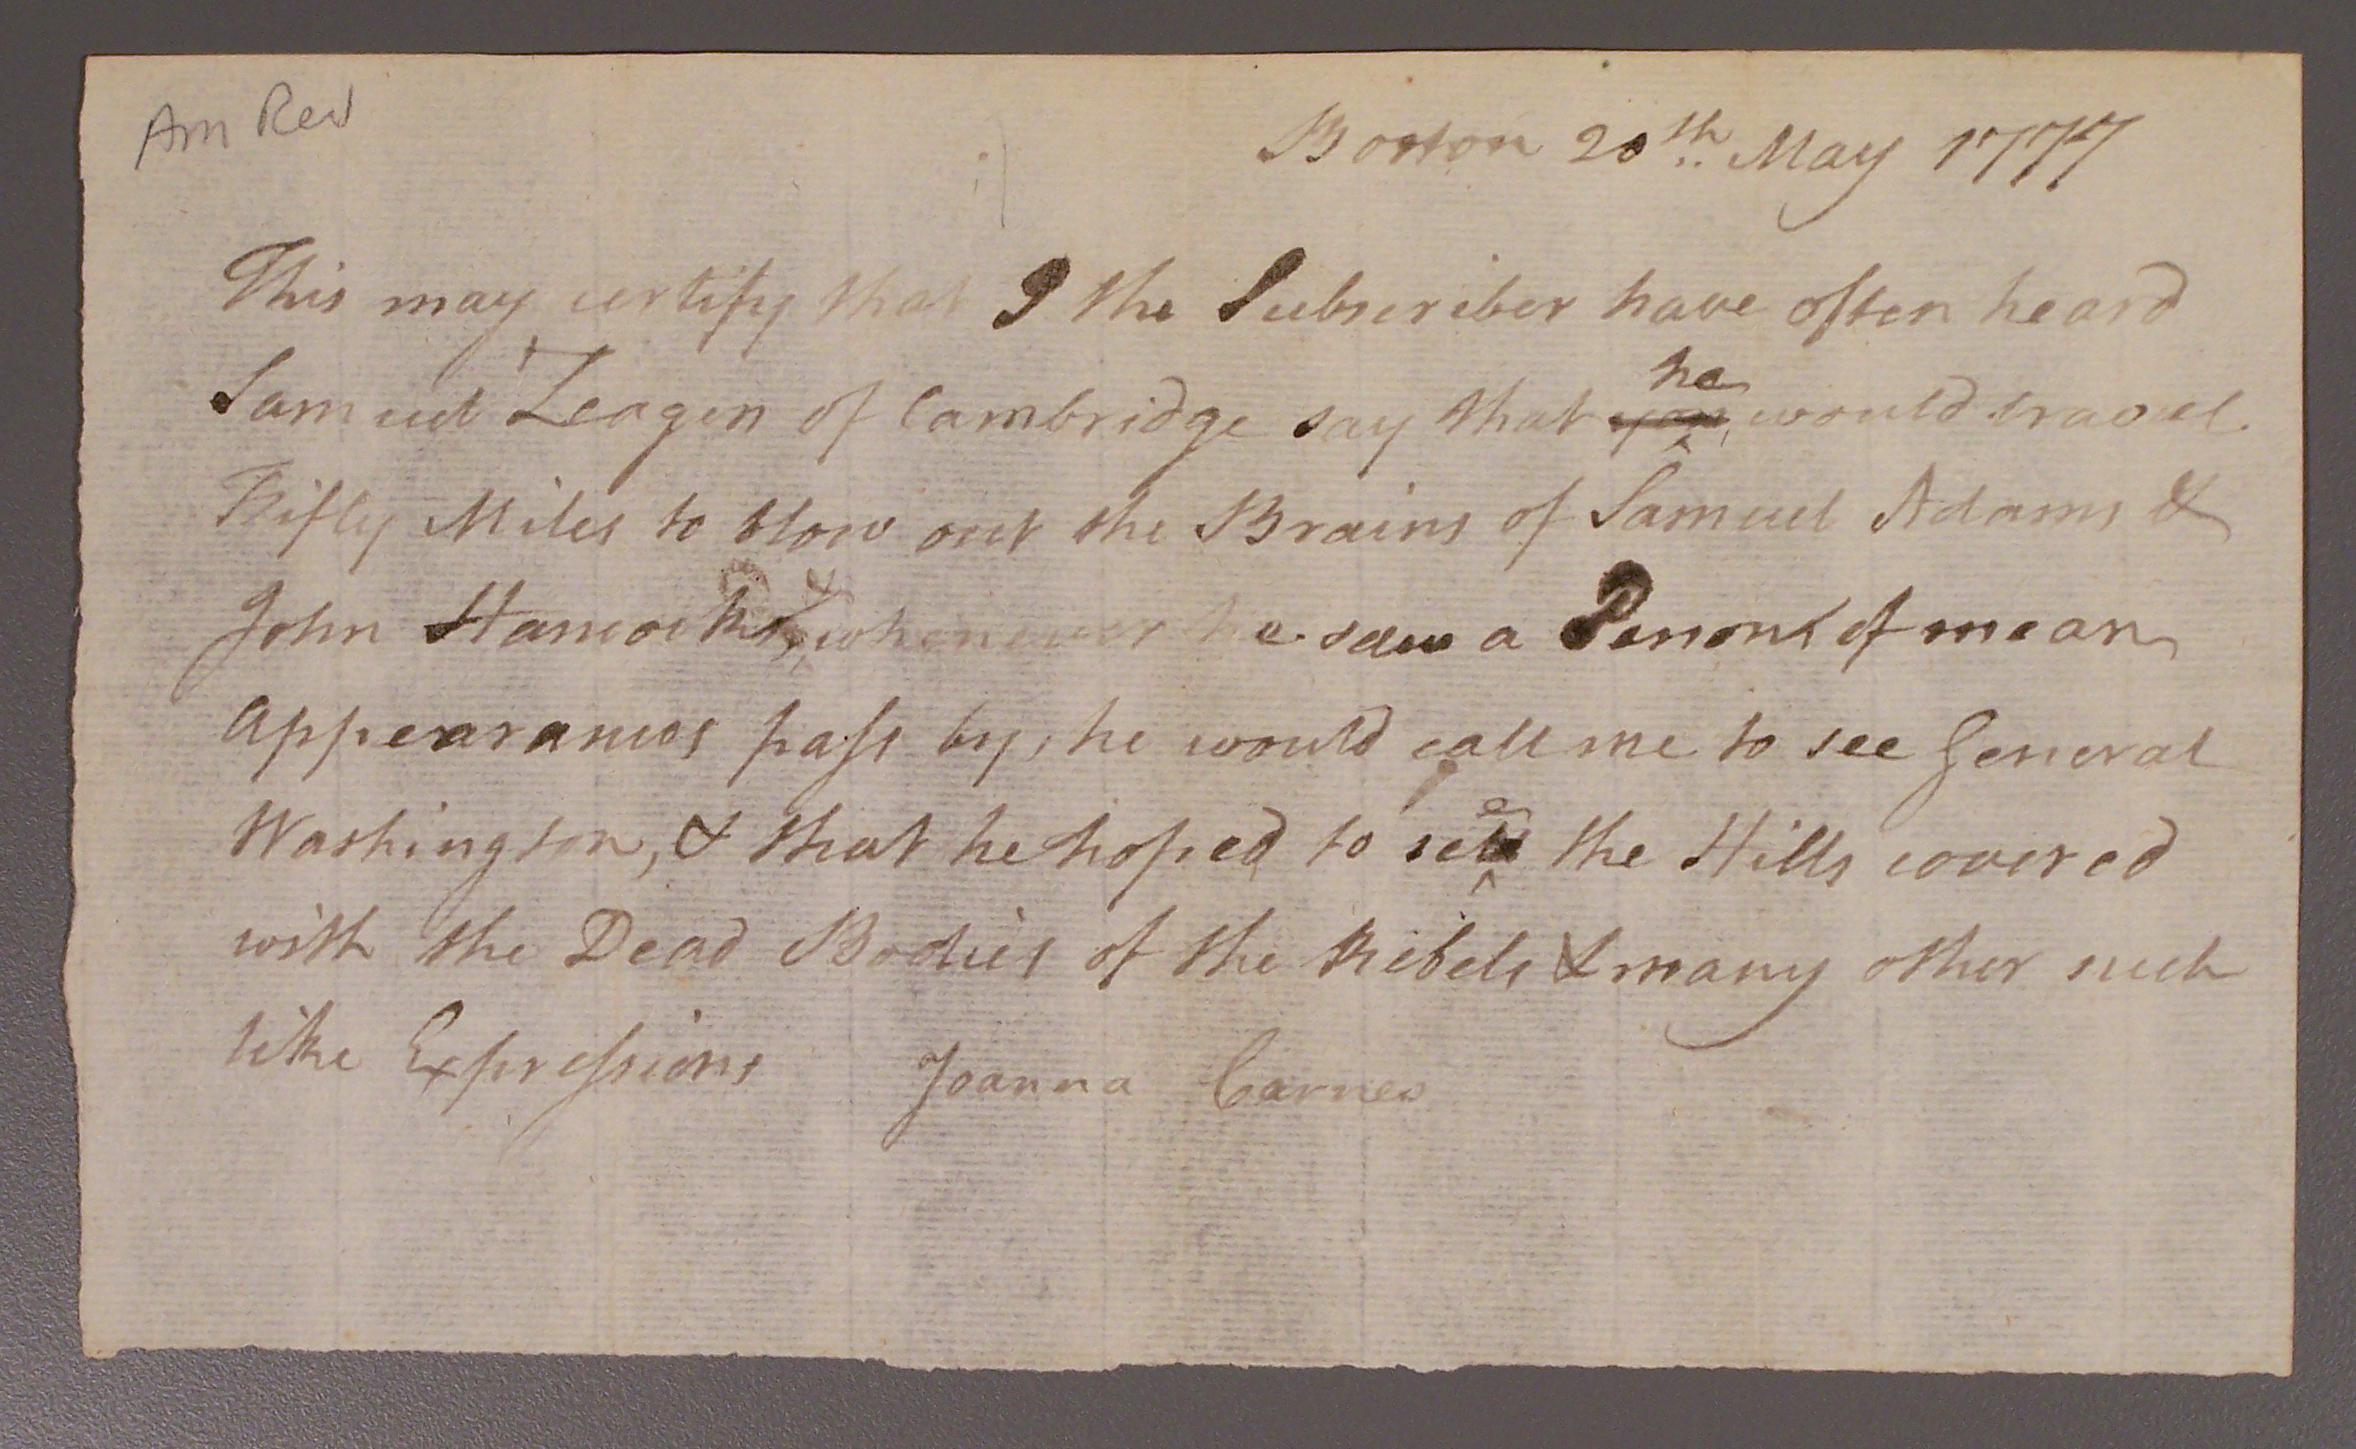 Am Rev
Boston 20th May 1777
This may certify that I the Subscriber have often heard
Samuel Leagen of Cambridge say that he would travel
Fifty Miles to blow out the Brains of Samuel Adams &
John Hancock, & whenever he saw a Person of mean
Appearances pass by, he would call me to see General
Washington, & that he hoped to see the Hills covered
with the Dead Bodies of the Rebels & many other such
like Expressions Joanna Carnes